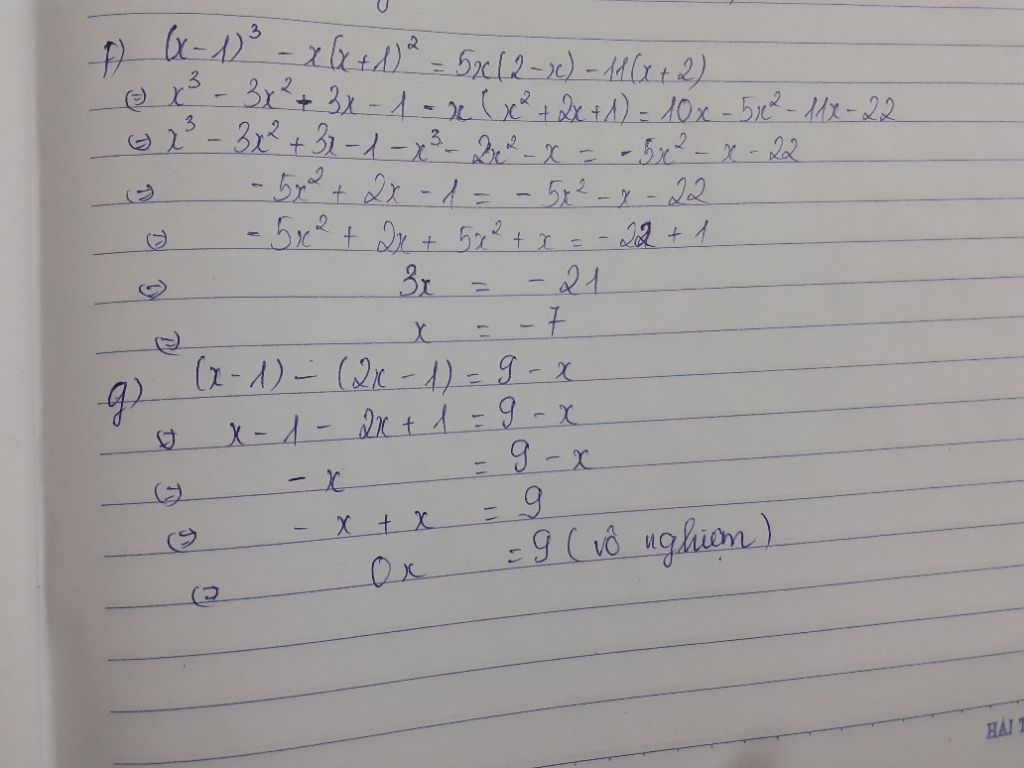 f) (x-1)³ - x(x+1)² = 5x(2-x) - 11(x+2)
⇔ x³ - 3x² + 3x - 1 - x(x²+2x+1) = 10x - 5x² - 11x - 22
⇔ x³ - 3x² + 3x - 1 - x³ - 2x² - x = -5x² - x - 22
⇔ -5x² + 2x - 1 = -5x² - x - 22
⇔ -5x² + 2x + 5x² + x = -22 + 1
⇔ 3x = -21
⇔ x = -7
g) (x-1) - (2x-1) = 9 - x
⇔ x - 1 - 2x + 1 = 9 - x
⇔ -x = 9 - x
⇔ -x + x = 9
⇔ 0x = 9 (vô nghiệm)
HẢI